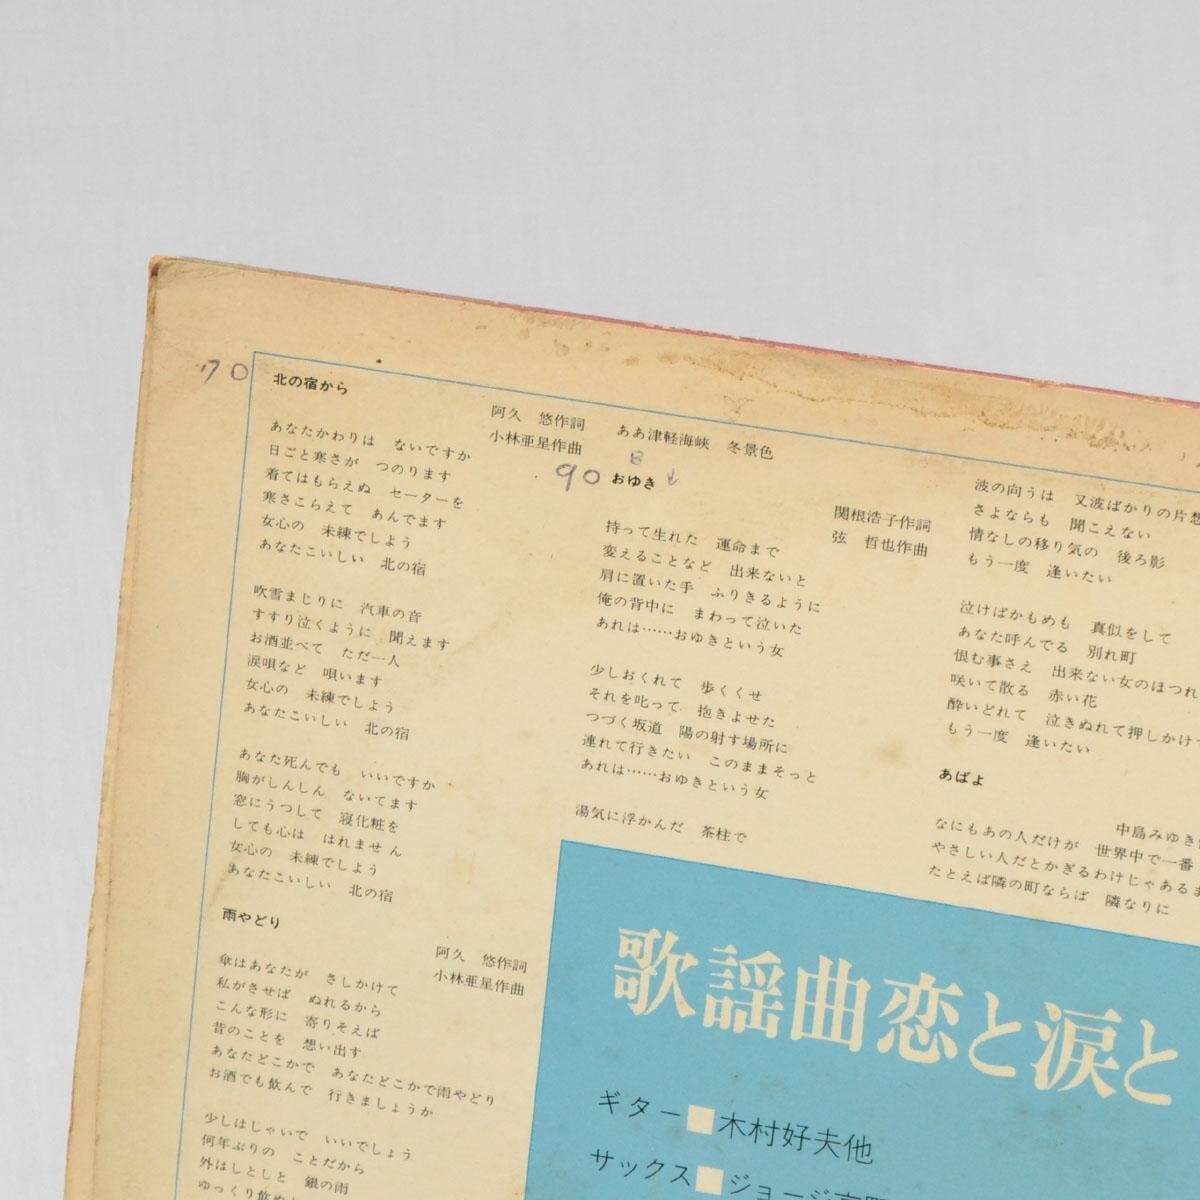 70
北の宿から
阿久　悠作詞
小林亜星作曲
あなたかわりは　ないですか
日ごと寒さが　つのります
着てはもらえぬ　セーターを
寒さこらえて　あんでます
女心の　未練でしよう
あなたこいしい　北の宿
吹雪まじりに　汽車の音
すすり泣くように　聞えます
お酒並べて　ただ一人
涙唄など　唄います
女心の　未練でしよう
あなたこいしい　北の宿
あなた死んでも　いいですか
胸がしんしん　ないてます
窓にうつして　寝化粧を
しても心は　はれません
女心の　未練でしよう
あなたこいしい　北の宿
雨やどり
阿久　悠作詞
小林亜星作曲
傘はあなたが　さしかけて
私がさせば　ぬれるから
こんな形に　寄りそえば
昔のことを　想い出す
あなたどこかで　あなたどこかで雨やどり
お酒でも飲んで　行きましょうか
少しはしゃいで　いいでしょう
何年ぶりの　ことだから
外はしとしと　銀の雨
ゆっくり飲
ああ津軽海峡　冬景色
8
90 おゆき
関根浩子作詞
弦　哲也作曲
持って生れた　運命まで
変えることなど　出来ないと
肩に置いた手　ふりきるように
俺の背中に　まわって泣いた
あれは……おゆきという女
少しおくれて　歩くくせ
それを叱って　抱きよせた
つづく坂道　陽の射す場所に
連れて行きたい　このままそっと
あれは……おゆきという女
湯気に浮かんだ　茶柱で
波の向うは　又波ばかりの片想
さよならも　聞こえない
情なしの移り気の　後ろ影
もう一度　逢いたい
泣けばかもめも　真似をして
あなた呼んでる　別れ町
恨む事さえ　出来ない女のほつれ
咲いて散る　赤い花
酔いどれて　泣きぬれて押しかけ
もう一度　逢いたい
あばよ
中島みゆき
なにもあの人だけが　世界中で一番
やさしい人だとかぎるわけじゃあるま
たとえば隣の町ならば　隣なりに
歌謡曲恋と涙と
ギター■木村好夫他
サックス■ジョージ高野